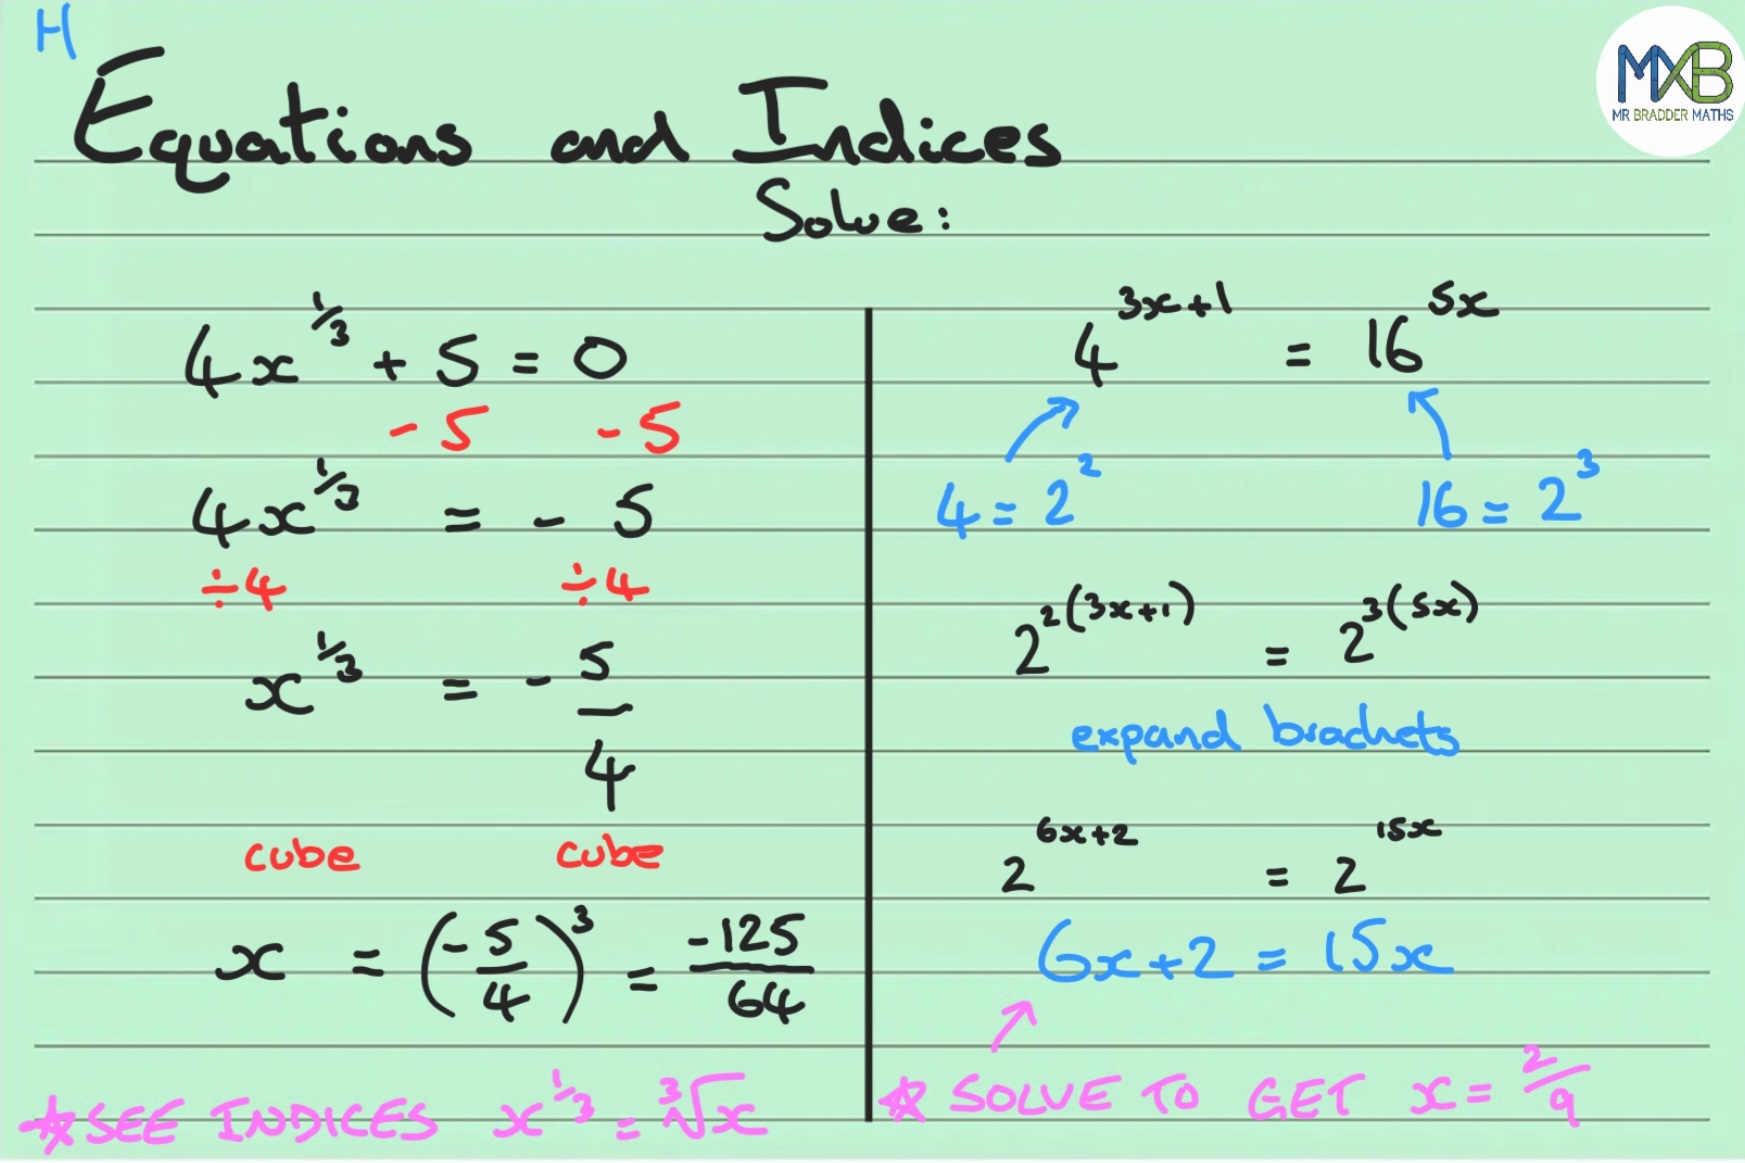 H
Equations and Indices
MXB
MR BRADDER MATHS
Solve:
4x^(1/3) + 5 = 0
-5 -5
4x^(1/3) = - 5
÷4 ÷4
x^(1/3) = - 5/4
cube cube
x = (-5/4)^3 = -125/64
☆ SEE INDICES x^(1/3) = ∛x
4^(3x+1) = 16^(5x)
4 = 2^2 16 = 2^3
2^(2(3x+1)) = 2^(3(5x))
expand brackets
2^(6x+2) = 2^(15x)
6x+2 = 15x
☆ SOLVE TO GET x = 2/9